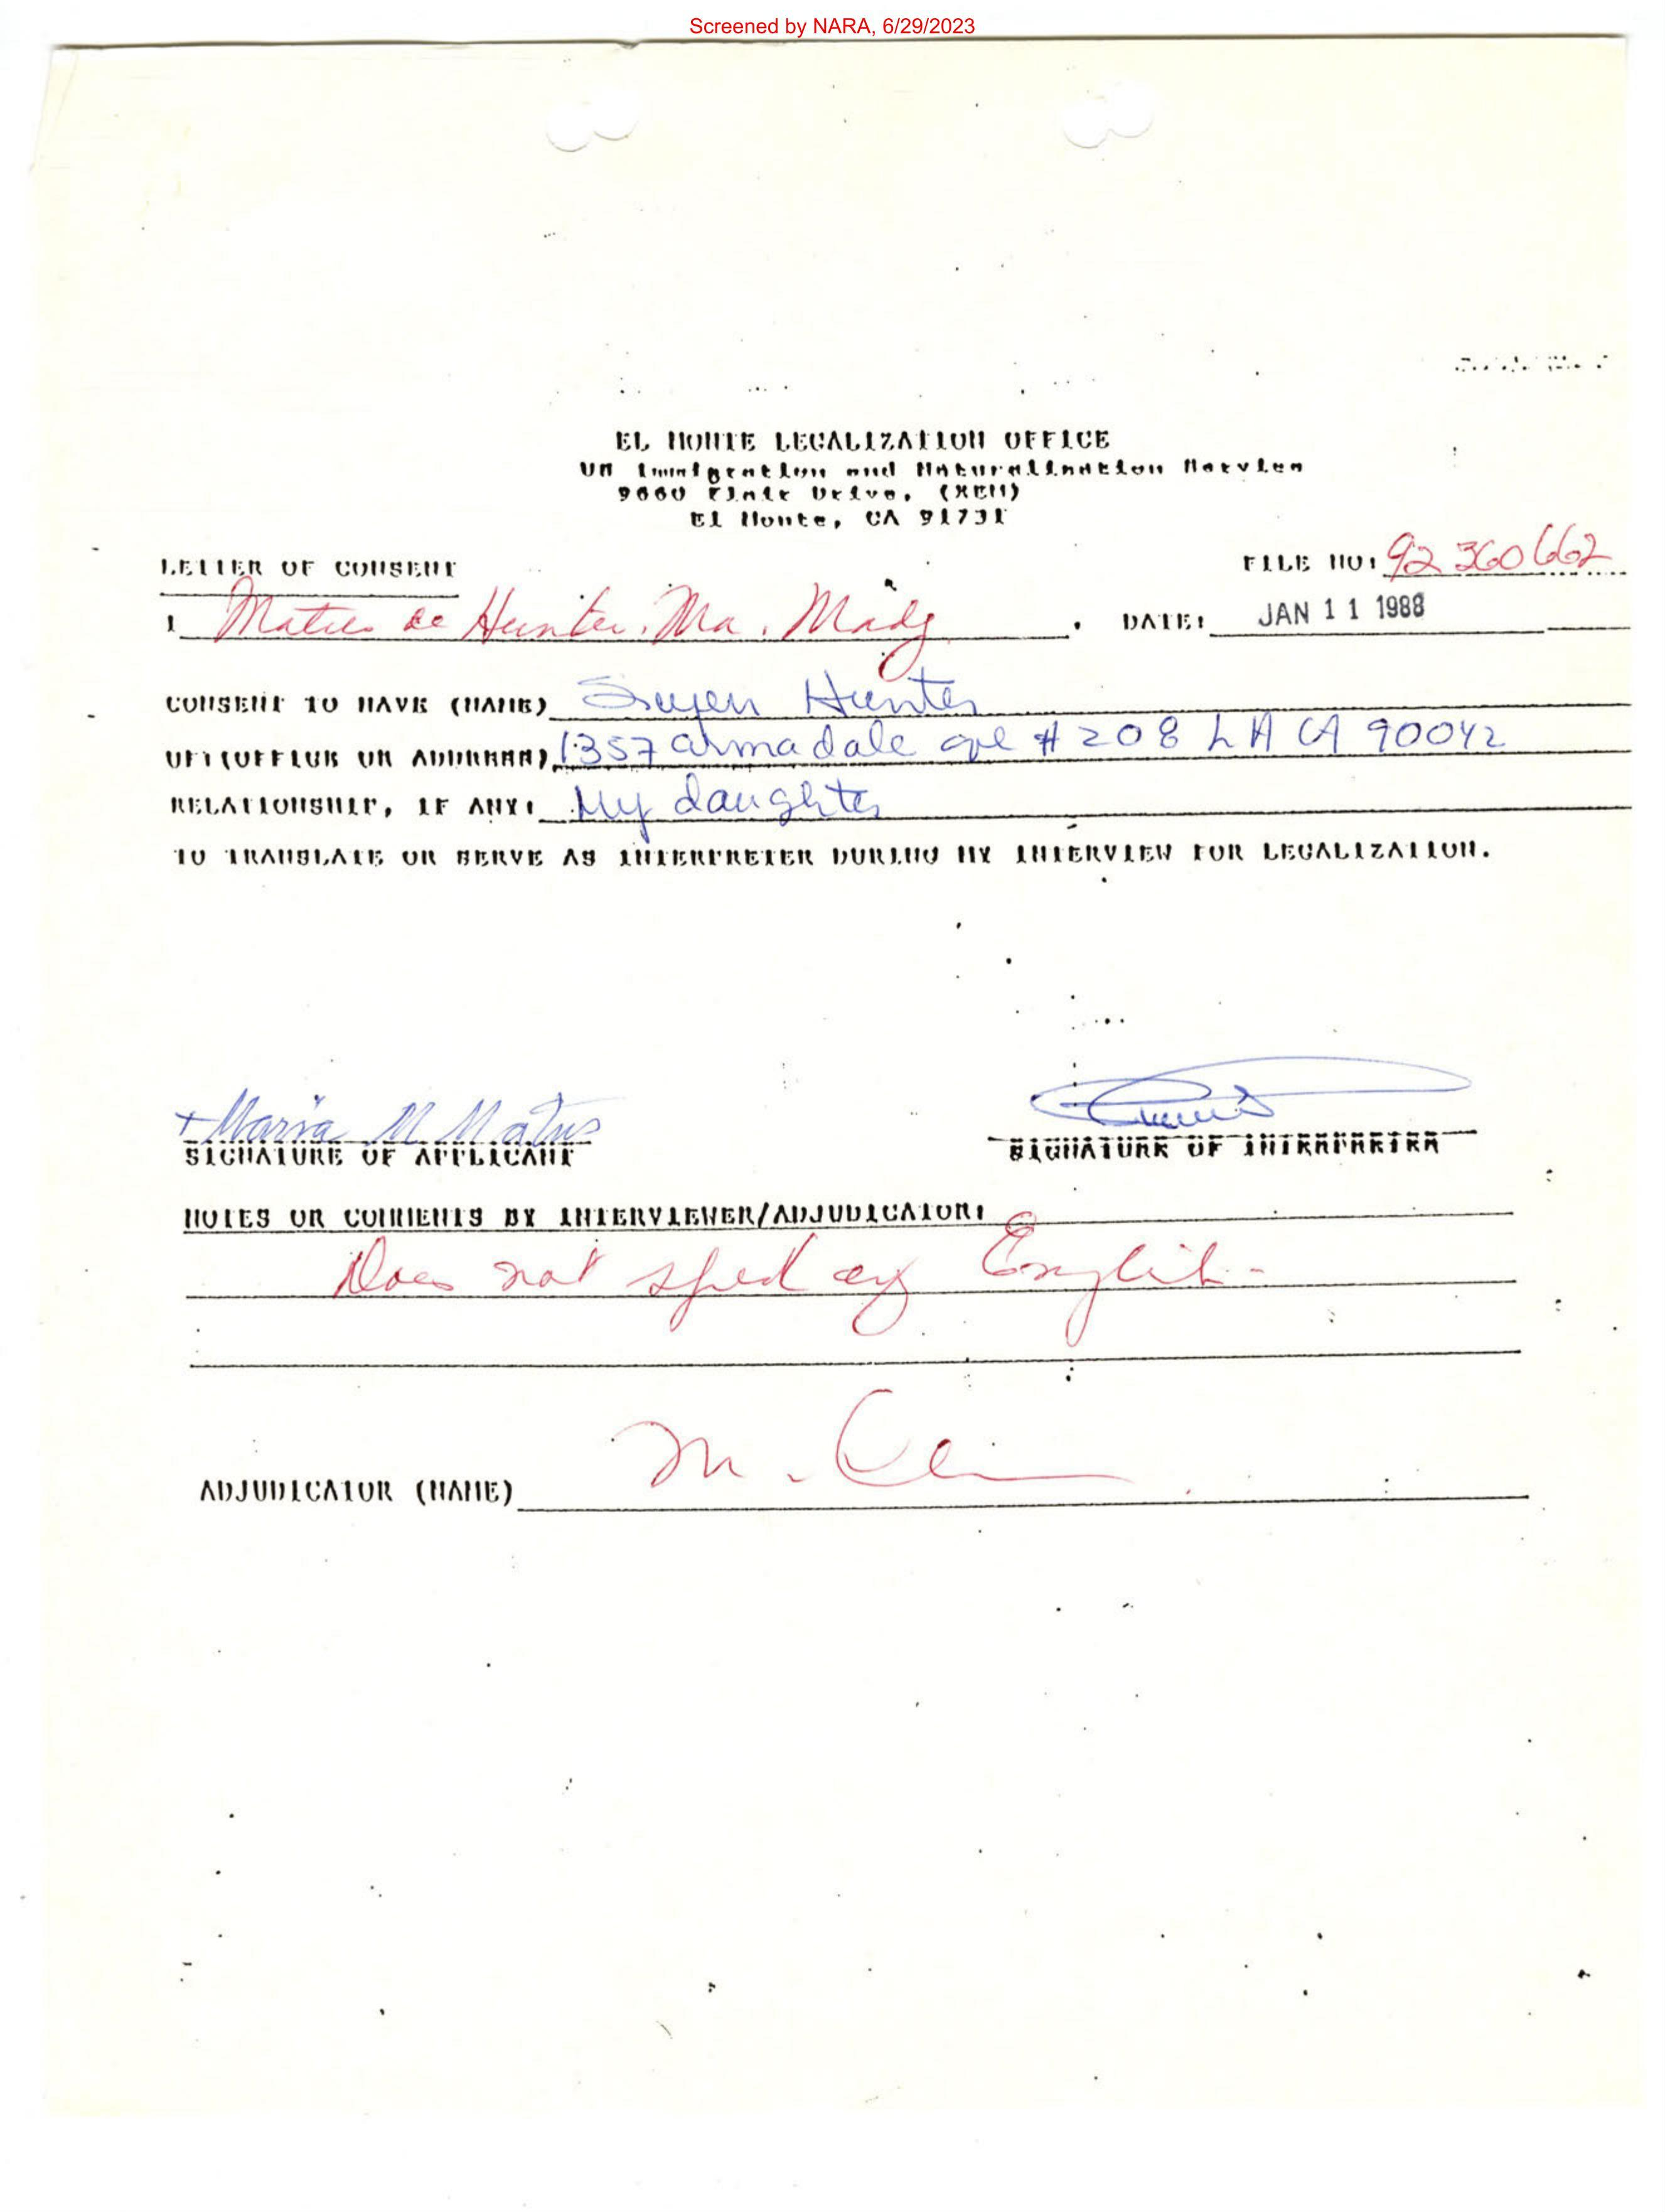 Screened by NARA, 6/29/2023
EL MONTE LEGALIZATION OFFICE
US Immigration and Naturalization Service
9660 Flair Drive, (XEM)
El Monte, CA 91731
LETTER OF CONSENT
FILE NO: 92 360 662
I Matus de Hunter. Ma.
DATE: JAN 11 1988
CONSENT TO HAVE (NAME) Suyen Hunter
OF: (OFFICE OR ADDRESS) 1357 armadale ave # 208 LA CA 90042
RELATIONSHIP, IF ANY: My daughter
TO TRANSLATE OR SERVE AS INTERPRETER DURING MY INTERVIEW FOR LEGALIZATION.
+ Maria M Matus
SIGNATURE OF APPLICANT
SIGNATURE OF INTERPRETER
NOTES OR COMMENTS BY INTERVIEWER/ADJUDICATOR:
Does not speak any English.
ADJUDICATOR (NAME) M.